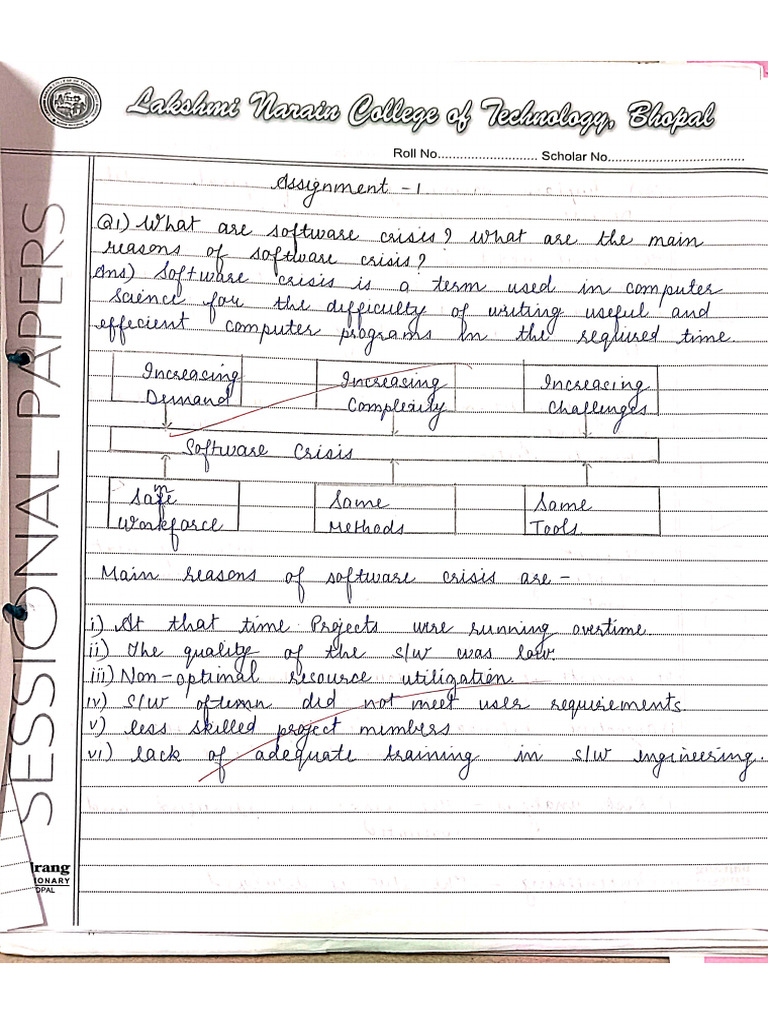 Lakshmi Narain College of Technology, Bhopal
Roll No............................ Scholar No......................................
Assignment - 1
Q1) What are software crisis? What are the main
reasons of software crisis?
Ans) Software crisis is a term used in computer
Science for the difficulty of writing useful and
effecient computer programs in the required time.
Increasing Demand
Increasing Complexity
Increasing Challenges
Software Crisis
Same Workforce
Same Methods
Same Tools
Main reasons of software crisis are -
i) At that time Projects were running overtime.
ii) The quality of the S/W was low.
iii) Non-optimal resource utilization.
iv) S/W oftemn did not meet user requirements.
v) less skilled project members
vi) lack of adequate training in S/W engineering.
SESSIONAL PAPERS
rang
IONARY
OPAL